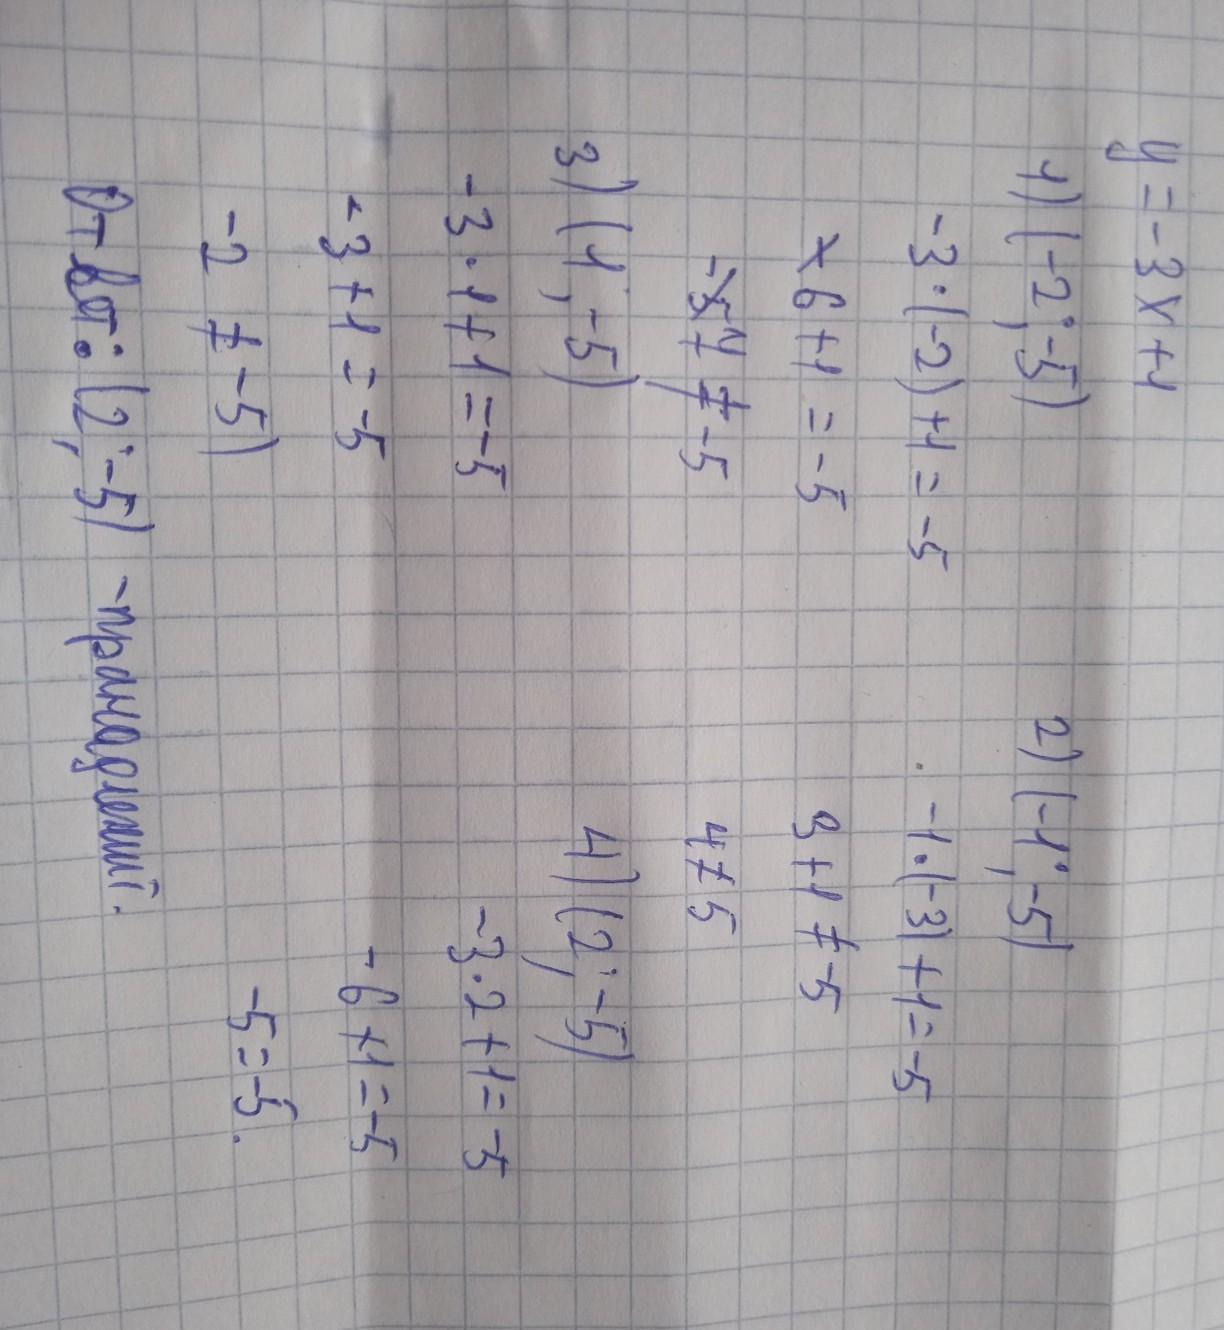 y = -3x+1
1) (-2; -5)
-3·(-2)+1 = -5
6+1 = -5
7 ≠ -5
2) (-1; -5)
-1·(-3)+1 = -5
3+1 ≠ -5
4 ≠ 5
3) (1; -5)
-3·1+1 = -5
-3+1 = -5
-2 ≠ -5)
4) (2; -5)
-3·2+1 = -5
-6+1 = -5
-5 = -5.
Ответ: (2; -5) -принадлежит.